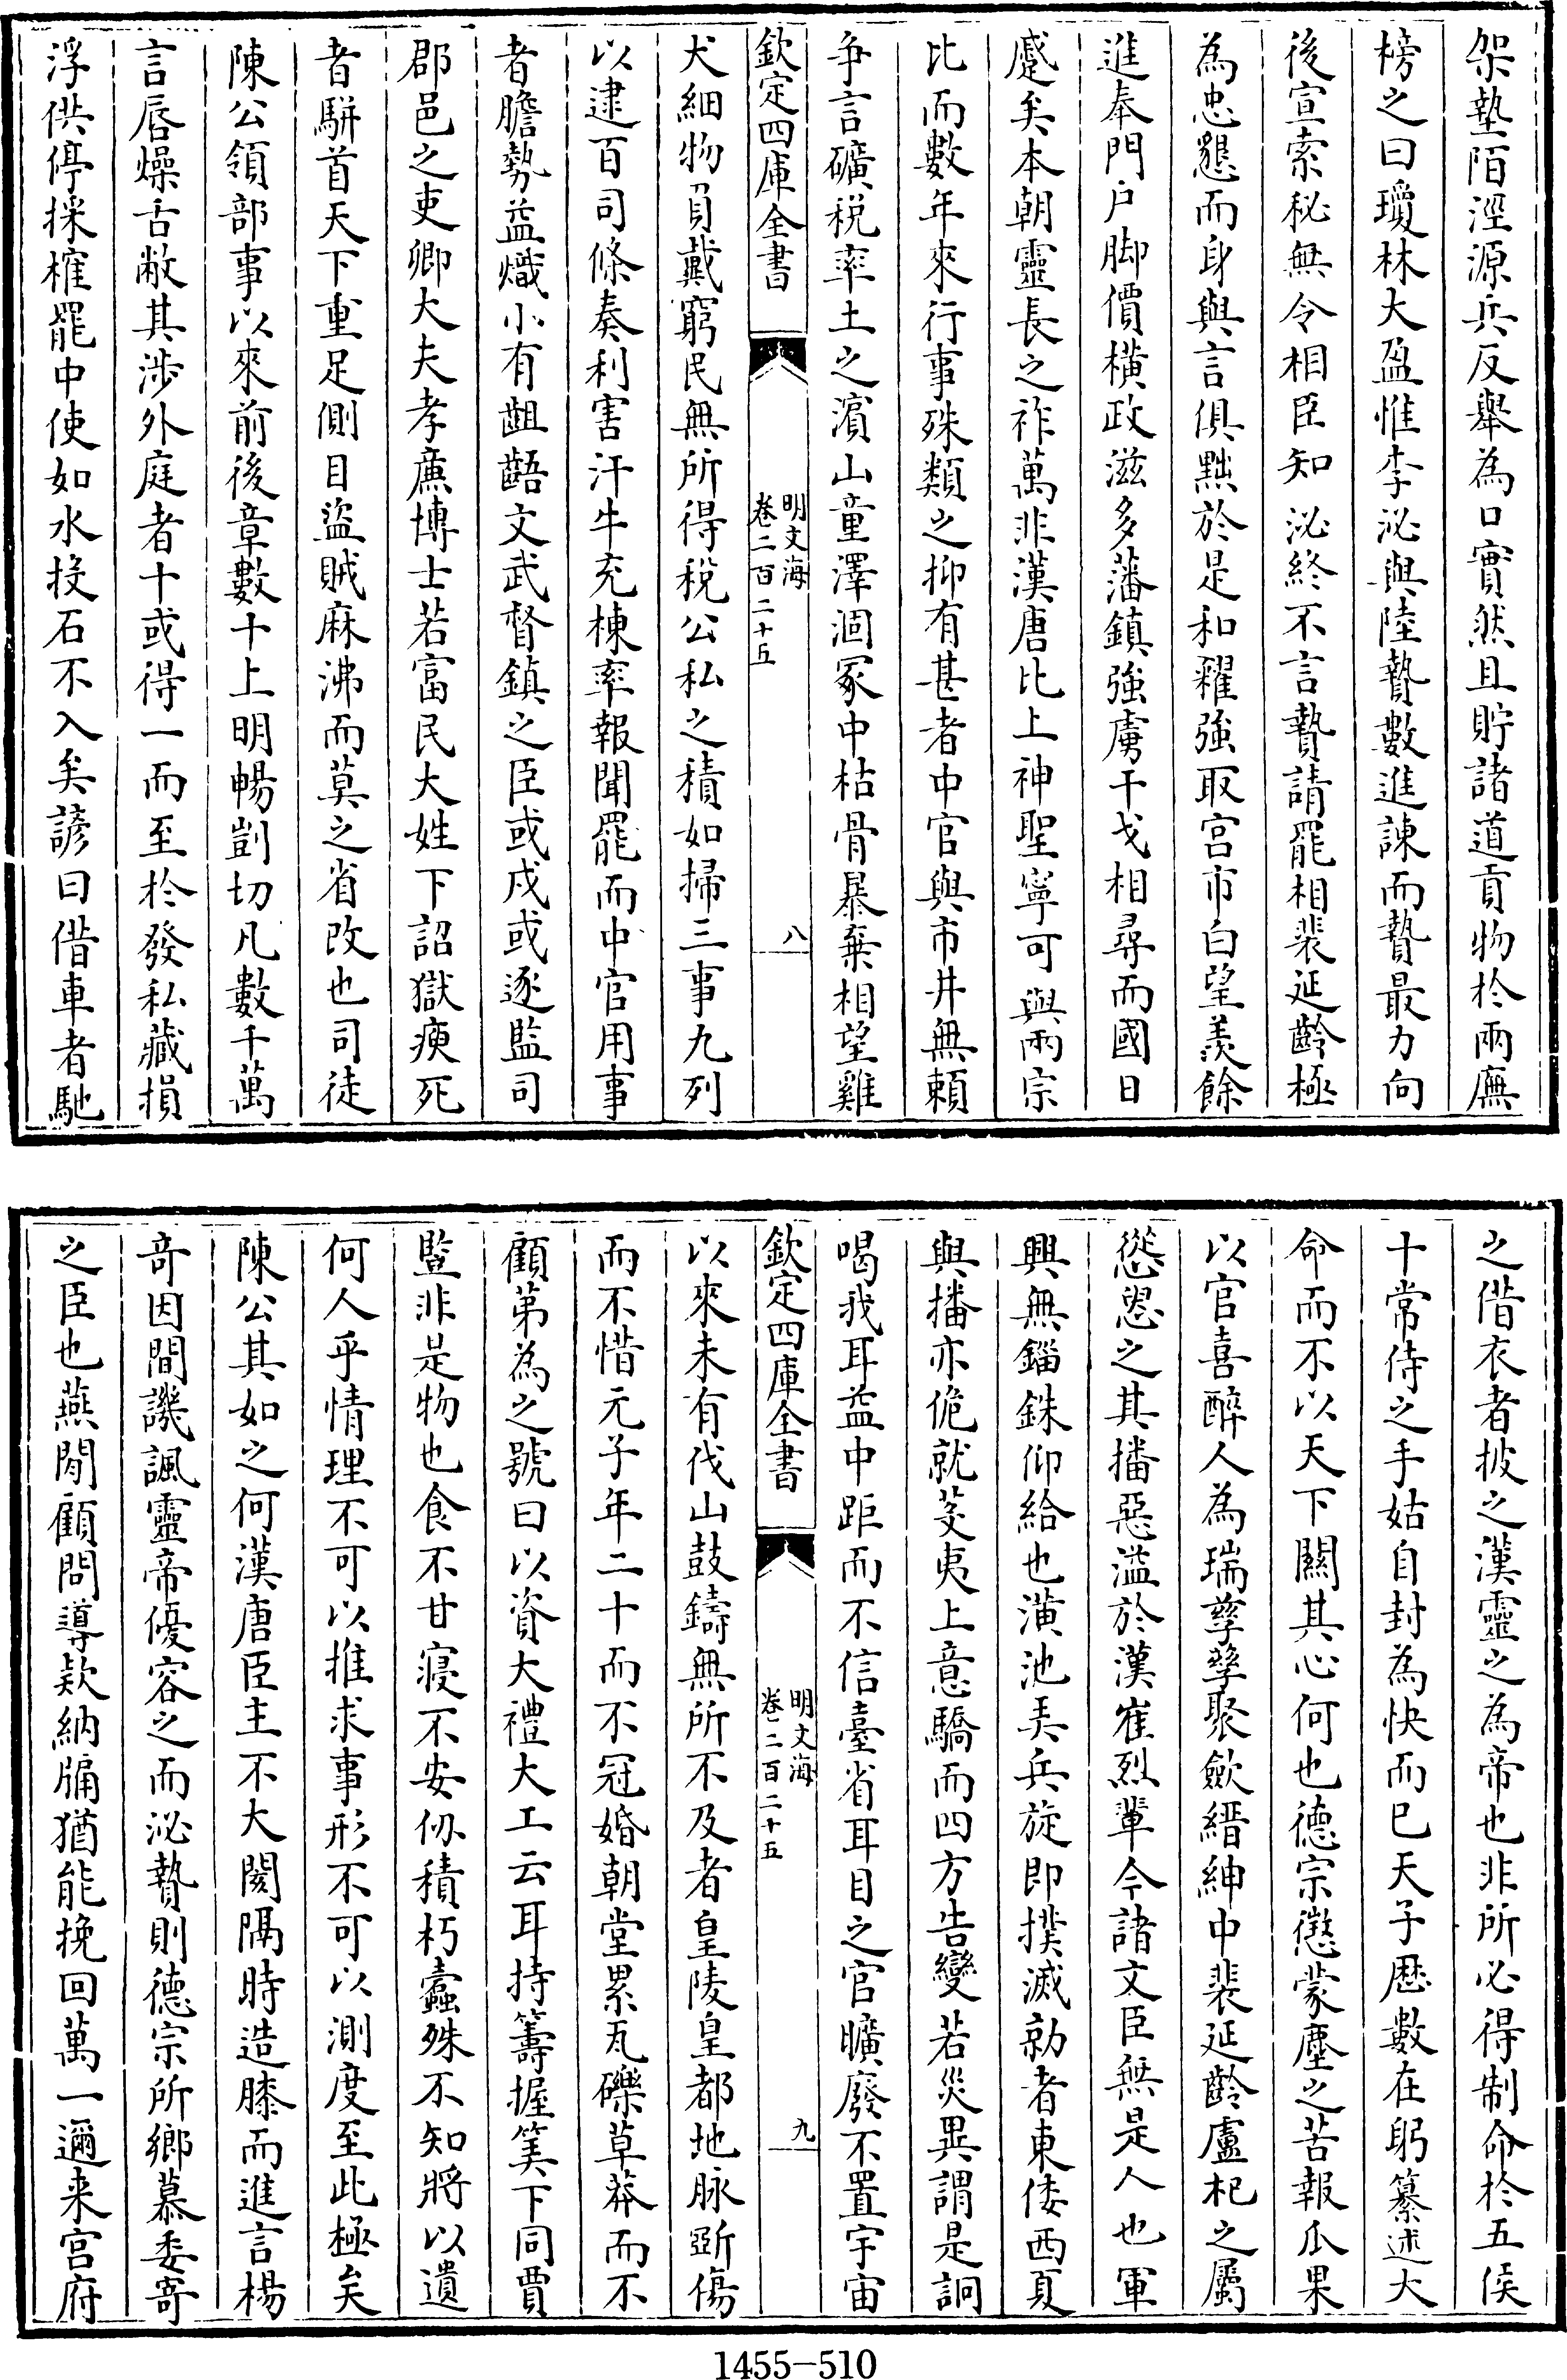 架墊陌涇源兵反舉為口實然且貯諸道貢物於兩廡
榜之曰瓊林大盈惟李泌與陸贄數進諫而贄最力向
後宣索秘無令相臣知泌終不言贄請罷相裴延齡極
為忠懇而身與言俱黜於是和糴強取宫市白望羨餘
進奉門户脚價横政滋多藩鎮強虜干戈相尋而國日
蹙矣本朝靈長之祚萬非漢唐比上神聖寧可與兩宗
比而數年來行事殊類之抑有甚者中官與市井無賴
争言礦税率土之濵山童澤涸冢中枯骨暴棄相望雞
欽定四庫全書
明文海
卷二百二十五
八
犬細物負戴窮民無所得税公私之積如掃三事九列
以逮百司條奏利害汗牛充棟率報聞罷而中官用事
者膽勢益熾小有齟齬文武督鎮之臣或戍或逐監司
郡邑之吏卿大夫孝廉博士若富民大姓下詔獄瘐死
者駢首天下重足側目盜賊麻沸而莫之省改也司徒
陳公領部事以來前後章數十上明暢剴切凡數千萬
言唇燥舌敝其涉外庭者十或得一而至於發私藏損
浮供停採榷罷中使如水投石不入矣諺曰借車者馳
之借衣者披之漢靈之為帝也非所必得制命於五侯
十常侍之手姑自封為快而已天子厯數在躬纂述大
命而不以天下關其心何也德宗懲蒙塵之苦報瓜果
以官喜醉人為瑞孽孽聚歛縉紳中裴延齡盧杞之屬
慫恿之其播惡溢於漢崔烈輩今諸文臣無是人也軍
興無錙銖仰給也潢池弄兵旋即撲滅勍者東倭西夏
與播亦俛就芟夷上意驕而四方告變若災異謂是詗
喝我耳益中距而不信臺省耳目之官曠廢不置宇宙
欽定四庫全書
明文海
卷二百二十五
九
以來未有伐山鼓鑄無所不及者皇陵皇都地脉斲傷
而不惜元子年二十而不冠婚朝堂累瓦礫草莽而不
顧第為之號曰以資大禮大工云耳持籌握筭下同賈
豎非是物也食不甘寝不安仞積朽蠹殊不知將以遺
何人乎情理不可以推求事形不可以測度至此極矣
陳公其如之何漢唐臣主不大閡隔時造膝而進言楊
奇因間譏諷靈帝優容之而泌贄則德宗所鄉慕委寄
之臣也燕閒顧問導欵納牖猶能挽回萬一邇来宫府
1455-510